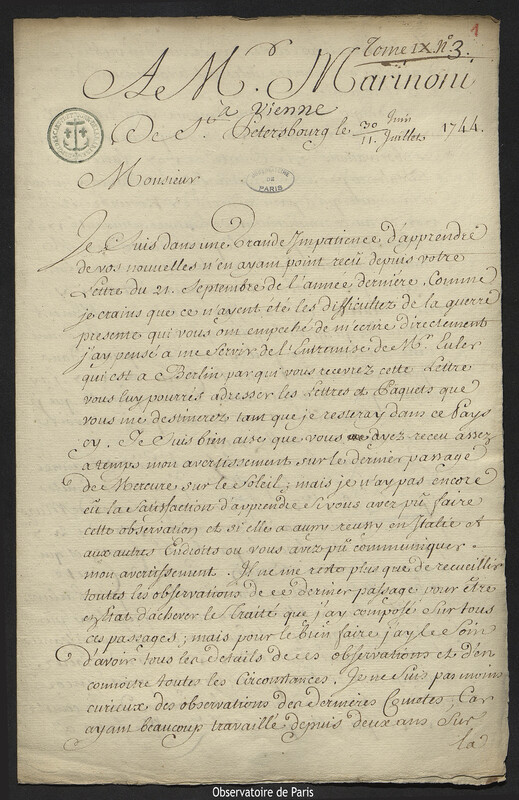 1
Tome IX. N.º 3.
A Mr. Marinoni
à Vienne
De St. Petersbourg le 30 Juin / 11. Juillet 1744.
OBSERVATOIRE DE PARIS
Monsieur
Je Suis dans une Grande Impatience, d'apprendre
de vos nouvelles n'en ayant point recû depuis votre
Lettre du 21. Septembre de l'année derniére. Comme
je crains que ce n'ayent été les difficultez de la guerre
presente qui vous ont empeché de m'écrire directement
j'ay pensé a me Servir de l'Entremise de Mr. Euler
qui est a Berlin par qui vous recevrez cette Lettre
vous luy pourrés adresser les Lettres et Paquets que
vous me destinerez tant que je resteray dans ce Pays
cy. Je Suis bien aise que vous ayez receu assez
a temps mon avertissement sur le dernier passage
de Mercure sur le Soleil; mais je n'ay pas encore
eû la Satisfaction d'apprendre Si vous avez pû faire
cette observation et si elle a aussy reussy en Italie et
aux autres Endroits ou vous avez pû communiquer
mon avertissement. Il ne me reste plus que de recueillir
toutes les observations de ce dernier passage pour être
en état d'achever le Traité que j'ay composé Sur tous
ces passages; mais pour le bien faire j'ay le Soin
d'avoir tous les details de ces observations et d'en
connoître toutes les Circonstances. Je ne Suis pas moins
curieux des observations des dernières Cometes, Car
ayant beaucoup travaillé depuis deux ans Sur
la
Observatoire de Paris